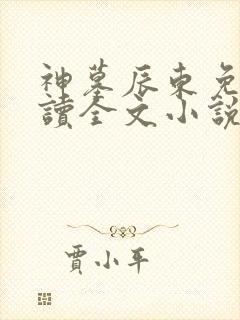 神墓辰東免
讀全文小說
賈小平